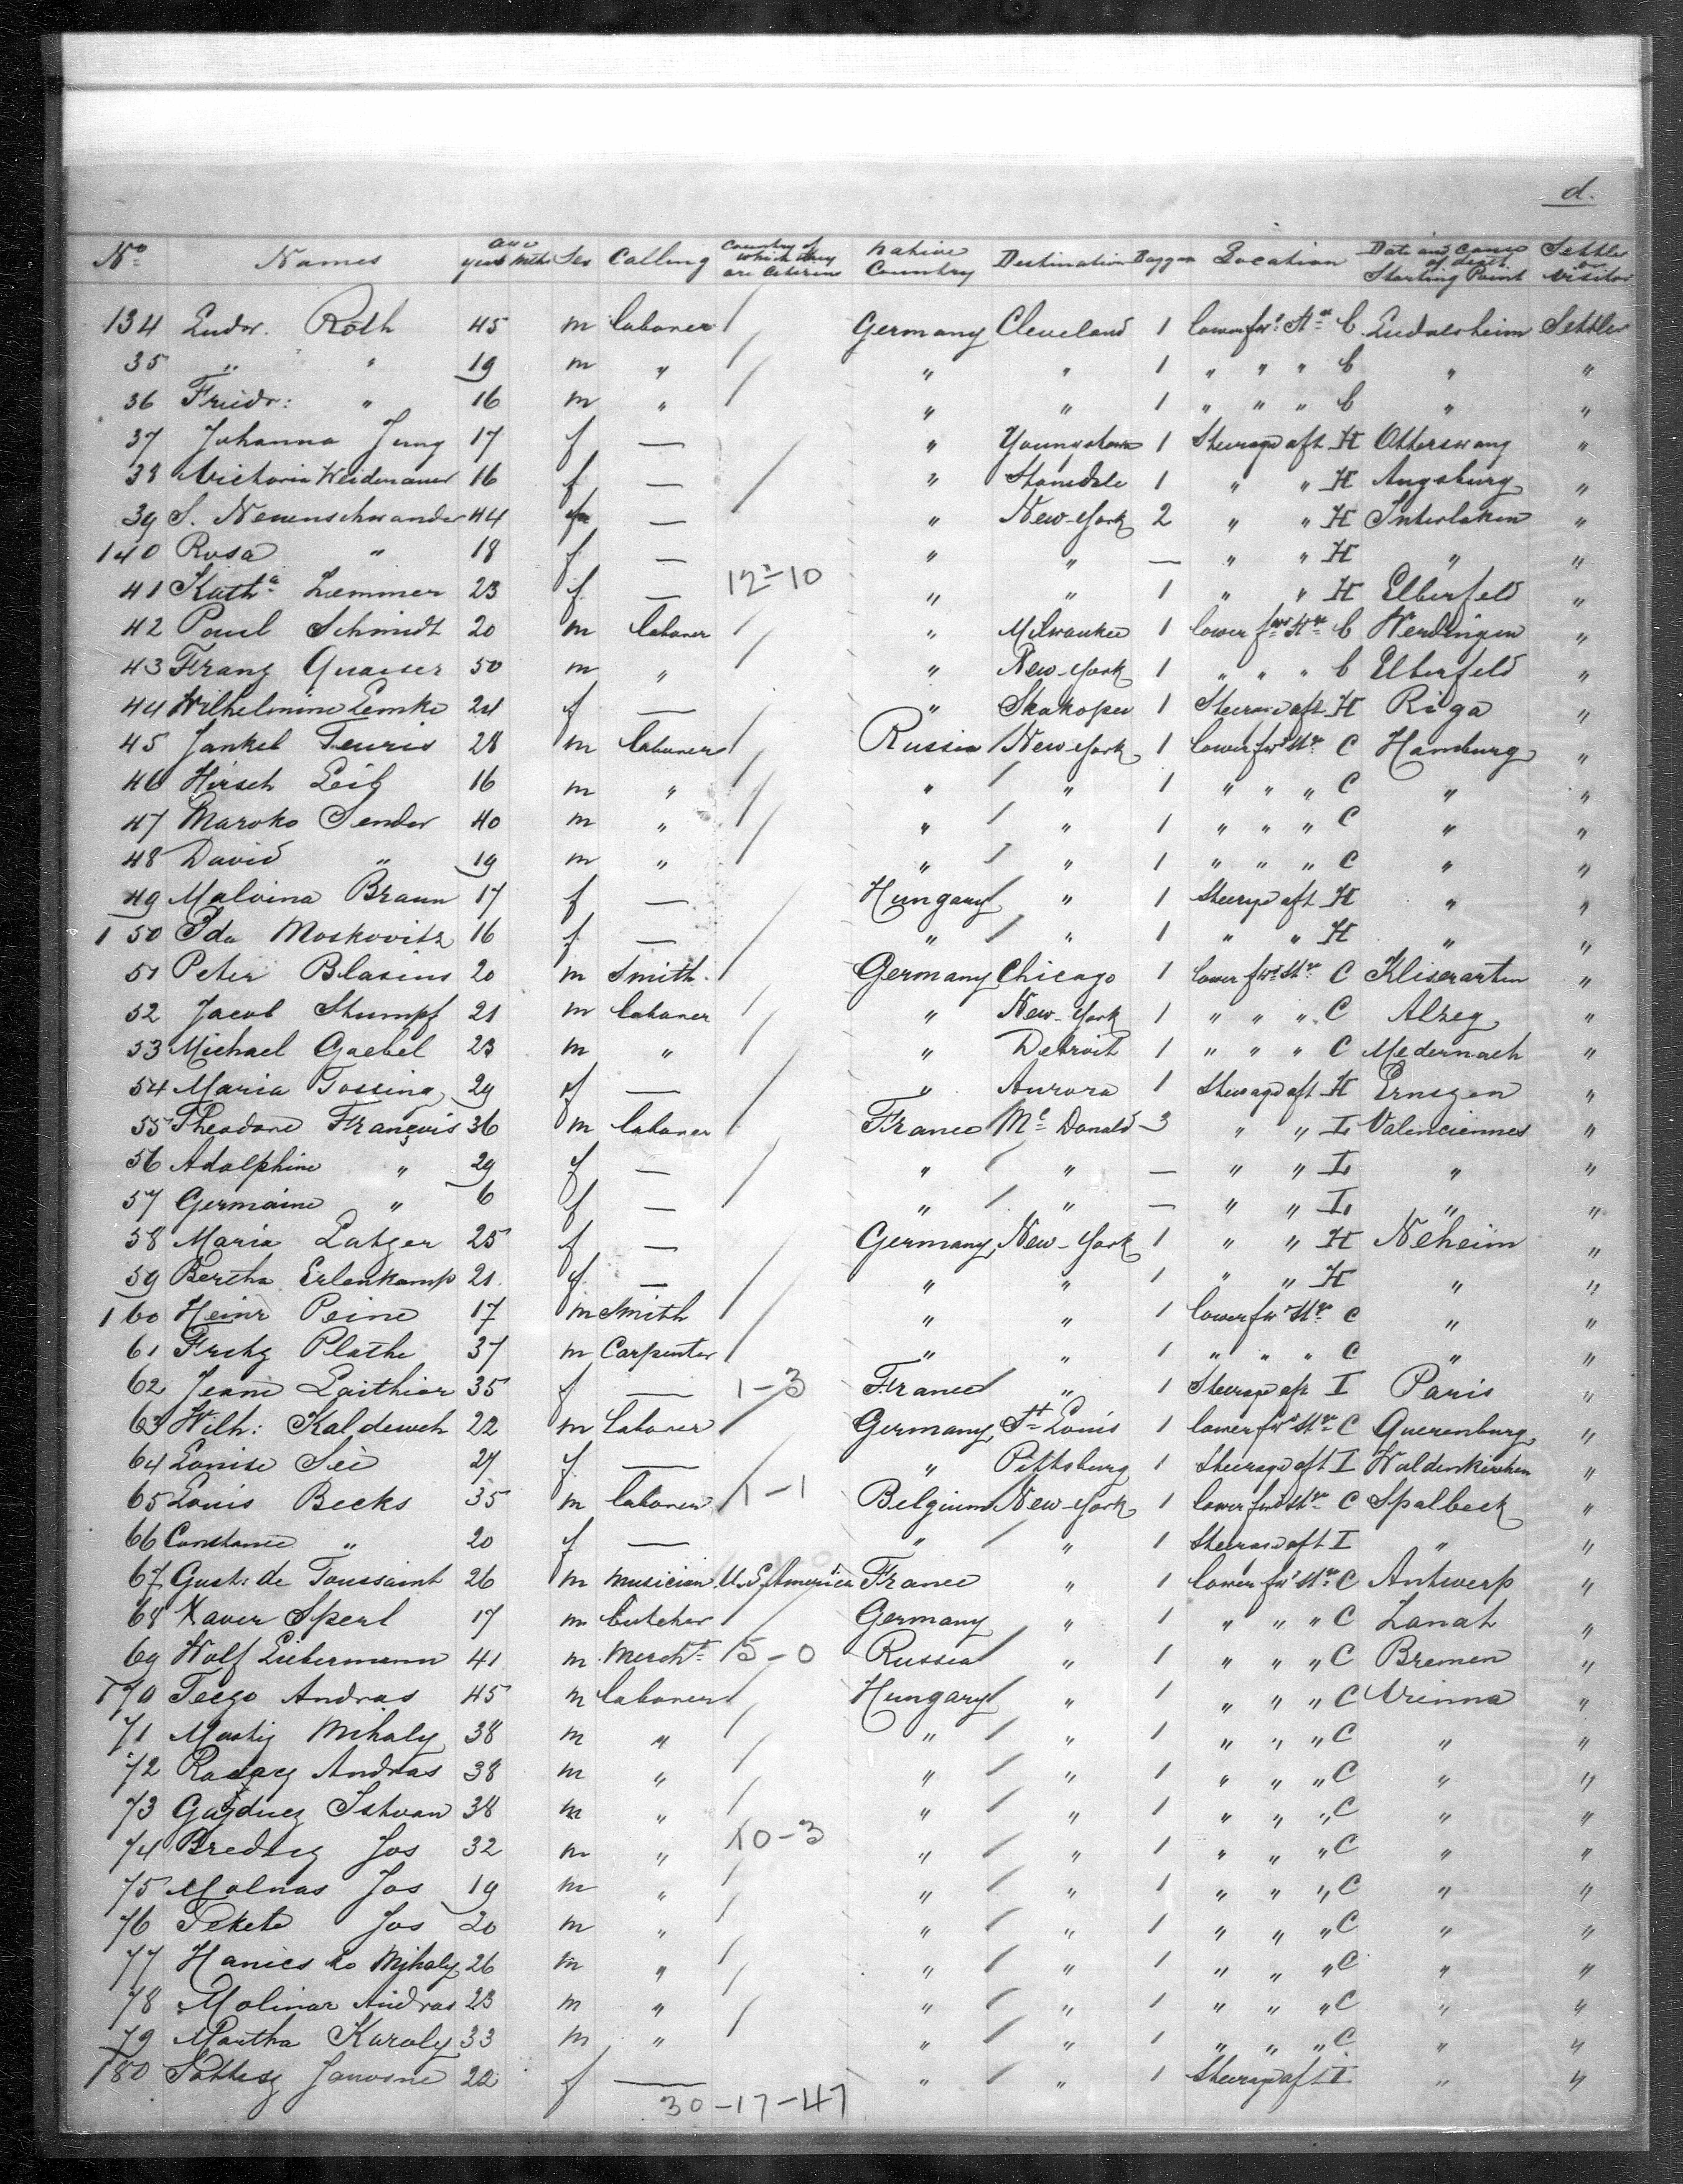 d.
No Names Age years Mths Sex Calling Country of which they are Citizens Native Country Destination Baggage Location Date and cause of death Starting Point Settler or Visitor
134 Ludw. Roth 45 m laborer / Germany Cleveland 1 lower fwd St C Settler
35 " " 19 m " / " " 1 " " " C " "
36 Friedr: " 16 m " / " " 1 " " " C " "
37 Johanna Jung 17 f — / " Youngstown 1 Steerage aft H Otterswang "
38 Victoria Weidenauer 16 f — / " Stonedale 1 " " H Augsburg "
39 S. Neuenschwander 44 — " New-York 2 " " H Interlaken "
140 Rosa " 18 f — " " — " " H " "
41 Katha Lemmer 23 f — 12-10 " " 1 " " H Elberfeld "
42 Paul Schmidt 20 m laborer / " Milwaukee 1 lower fwd St C "
43 Franz Quaiser 50 m " / " New-York 1 " " " C Elberfeld "
44 Wilhelmine Lemke 24 f — / " Shakopee 1 Steerage aft H Riga "
45 Jankel Teuris 28 m laborer / Russia New-York 1 lower fwd St C Hamburg "
46 Hirsch Leib 16 m " / " / " 1 " " " C " "
47 Maroko Sender 40 m " / " / " 1 " " " C " "
48 David " 19 m " / " / " 1 " " " C " "
49 Malvina Braun 17 f — / Hungary / " 1 Steerage aft H " "
150 Ida Moskovitz 16 f — / " / " 1 " " H " "
51 Peter Blasius 20 m Smith / Germany Chicago 1 lower fwd St C "
52 Jacob Stumpf 21 m laborer / " New-York 1 " " " C Alzey "
53 Michael Goebel 23 m " / " Detroit 1 " " " C Medernach "
54 Maria Tossing 29 f — / " Aurora 1 Steerage aft H Ernzen "
55 Theodore François 36 m laborer France Mc Donald 3 " " I Valenciennes "
56 Adolphine " 29 f — / " / " — " " I " "
57 Germaine " 6 f — / " / " — " " I " "
58 Maria Latzer 25 f — / Germany New-York 1 " " H Neheim "
59 Bertha Erlenkamp 21 f — / " " 1 " " H " "
160 Heinr Peine 17 m Smith / " " 1 lower fwd St C " "
61 Fritz Plathe 37 m Carpenter / " " 1 " " " C " "
62 Jeanne 35 f — 1-3 France / " 1 Steerage aft I Paris "
63 Wilh: Kaldeweh 22 m laborer / Germany St Louis 1 lower fwd St C Querenburg "
64 Louise Sei 27 f — " Pittsburg 1 Steerage aft I Waldenkirchen "
65 Louis Becks 35 m laborer 1-1 Belgium New-York 1 lower fwd St C Spalbeek "
66 Constance " 20 f — " / " 1 Steerage aft I " "
67 Gust: de Toussaint 26 m musician U.S. America France " 1 lower fwd St C Antwerp "
68 Xaver Sperl 17 m butcher / Germany " 1 " " " C "
69 Wolf Liebermann 41 m Mercht 5-0 Russia / " 1 " " " C Bremen "
170 Andras 45 m laborer / Hungary / " 1 " " " C Vienna "
71 Mihaly 38 m " / " / " 1 " " " C " "
72 Andras 38 m " / " / " 1 " " " C " "
73 Istvan 38 m " / " / " 1 " " " C " "
74 Jos 32 m " 10-3 " / " 1 " " " C " "
75 Molnas Jos 19 m " / " / " 1 " " " C " "
76 Fekete Jos 20 m " / " / " 1 " " " C " "
77 Mihaly 26 m " / " / " 1 " " " C " "
78 Molinar Andras 23 m " / " / " 1 " " " C " "
79 Martha Karoly 33 m " / " / " 1 " " " C " "
180 22 f — " / " 1 Steerage aft I " "
30-17-47